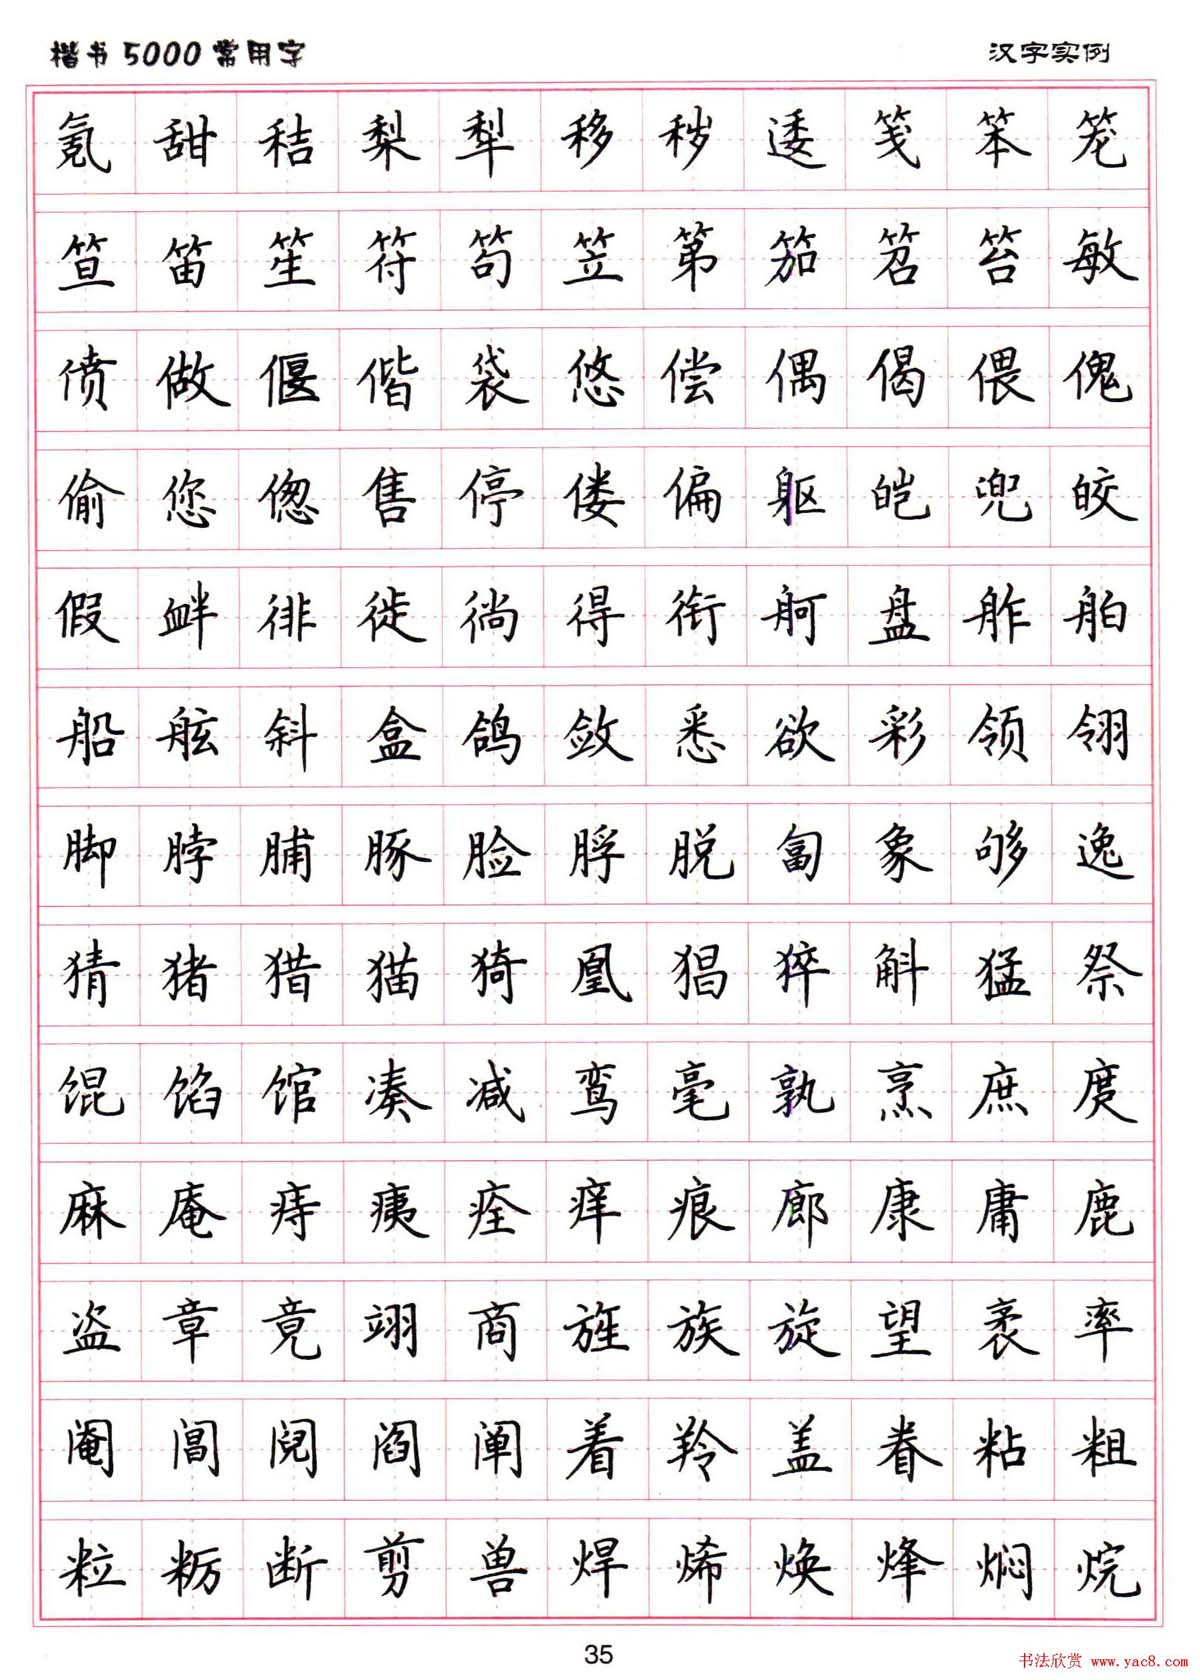 楷书5000常用字 汉字实例
氪甜秸梨犁移秽逶笺笨笼
笪笛笙符笱笠第笳笤笞敏
偾做偃偕袋悠偿偶偈偎傀
偷您偬售停偻偏躯皑兜皎
假衅徘徙徜得衔舸盘舴舶
船舷斜盒鸽敛悉欲彩领翎
脚脖脯豚脸脬脱匐象够逸
猜猪猎猫猗凰猖猝斛猛祭
馄馅馆凑减鸾毫孰烹庶度
麻庵痔痍痊痒痕廊康庸鹿
盗章竟翊商旌族旋望袤率
阉阊阋阎阐着羚盖眷粘粗
粒粝断剪兽焊烯焕烽焖烷
35
书法欣赏 www.yac8.com